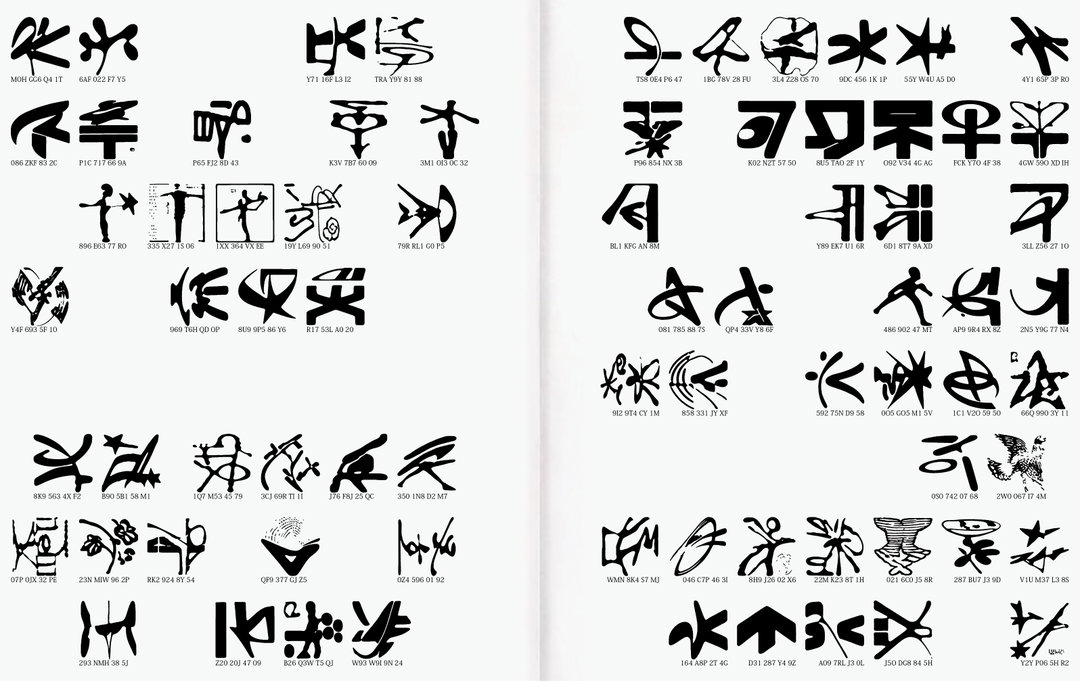 MOH GG6 Q4 1T 6AF 022 F7 Y5 Y71 16F L3 I2 TRA Y9Y 81 88
086 ZKF 83 2C P1C 717 66 9A P65 FJ2 8D 43 K3V 7B7 60 09 3M1 OI3 0C 32
896 E63 77 RO 335 X27 1S 06 1XX 364 VX EE 19Y L69 90 51 79R RL1 G0 P5
Y4F 693 5F 10 969 T6H QD OP 8U9 9P5 86 Y6 R17 53L A0 20
8K9 563 4X F2 B90 5B1 58 M1 1Q7 M53 45 79 3CJ 69R TI 1I J76 F8J 25 QC 350 1N8 D2 M7
07P 0JX 32 PE 23N MIW 96 2P RK2 924 8Y 54 QF9 377 GJ Z5 0Z4 596 01 92
293 NMH 38 5J Z20 20J 47 09 B26 Q3W T5 QJ W93 W9I 9N 24
TS8 0E4 P6 47 1BG 78V 28 FU 3L4 Z28 OS 70 9DC 456 1K 1P 55Y W4U A5 D0 4Y1 65P 3P RO
P96 854 NX 3B K02 N2T 57 50 8U5 TAO 2F 1Y O92 V34 4G AG FCK Y7O 4F 38 4GW 59O XD IH
BL1 KFG AN 8M Y89 EK7 U1 6R 6D1 8T7 9A XD 3LL Z56 27 1O
081 785 88 7S QP4 33V Y8 6F 486 902 47 MT AP9 9R4 RX 8Z 2N5 Y9G 77 N4
9I2 9T4 CY 1M 858 331 JY XF 592 75N D9 58 0O5 GO5 M1 5V 1C1 V2O 59 50 66Q 990 3Y 11
0S0 742 07 68 2W0 067 I7 4M
WMN 8K4 S7 MJ 046 C7P 46 3I 8H9 J26 02 X6 22M K23 8T 1H 021 6C0 J5 8R 287 BU7 J3 9D V1U M37 L3 8S
164 A8P 2T 4G D31 287 Y4 9Z A09 7RL J3 0L J50 DG8 84 5H Y2Y P06 5H R2